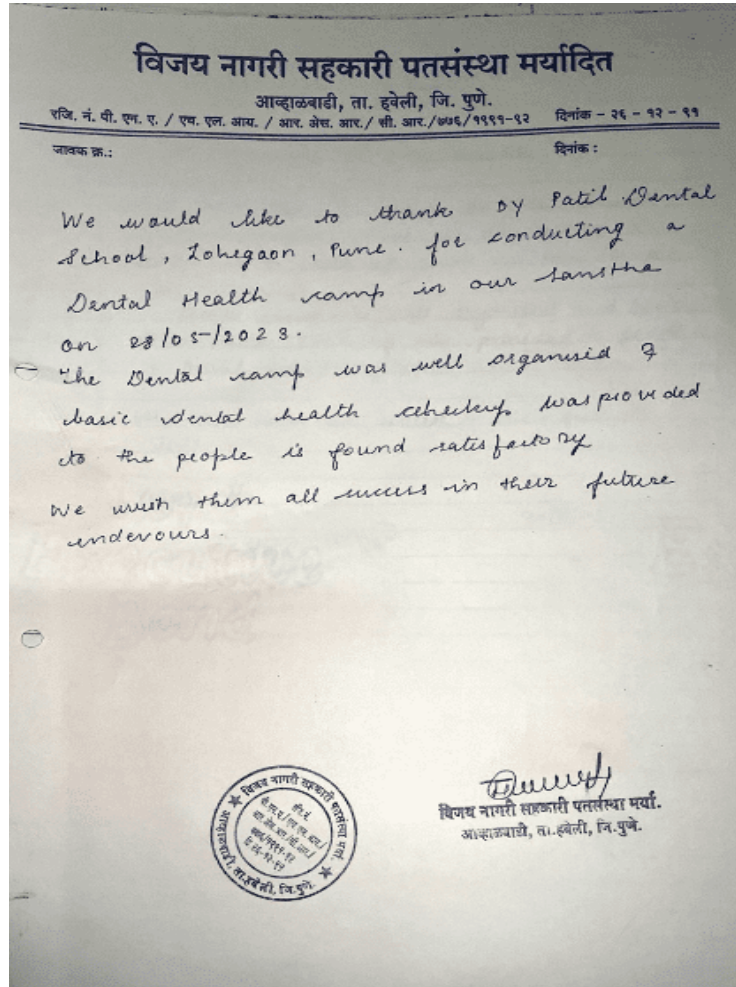 विजय नागरी सहकारी पतसंस्था मर्यादित
आव्हाळवाडी, ता. हवेली, जि. पुणे.
रजि. नं. पी. एन. ए. / एच. एल. आय. / आर. ओस. आर./ सी. आर./७७६/१९९१-९२ दिनांक - २६ - १२ - ९१
जावक क्र.: दिनांक :
We would like to thank DY Patil Dental
School, Lohegaon, Pune. for conducting a
Dental Health camp in our Sanstha
on /05/2023.
The Dental camp was well organisid &
basic dental health checkup was provided
to the people is found satisfactory
We wish them all success in their future
endevours.
विजय नागरी सहकारी पतसंस्था मर्या.
आव्हाळवाडी, ता.हवेली, जि.पुणे.
विजय नागरी सहकारी पतसंस्था मर्या.
आव्हाळवाडी, ता.हवेली, जि.पुणे.